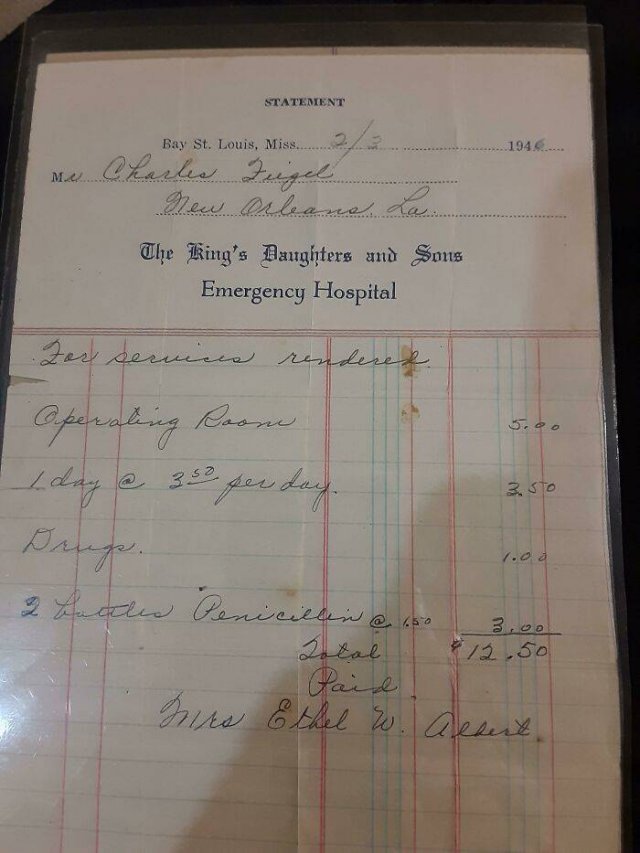 STATEMENT
Bay St. Louis, Miss. 2/3 1946
Mr Charles Figel
New Orleans, La.
The King's Daughters and Sons
Emergency Hospital
For services rendered
Operating Room 5.00
1 day @ 3.50 per day. 3.50
Drugs. 1.00
2 bottles Penicillin @ 1.50 3.00
Total $12.50
Paid
Mrs Ethel W. Albert